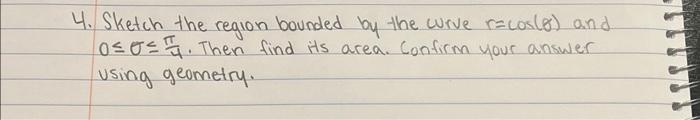 4. Sketch the region bounded by the curve r=cos(θ) and
0≤θ≤π/4. Then find its area. Confirm your answer
using geometry.